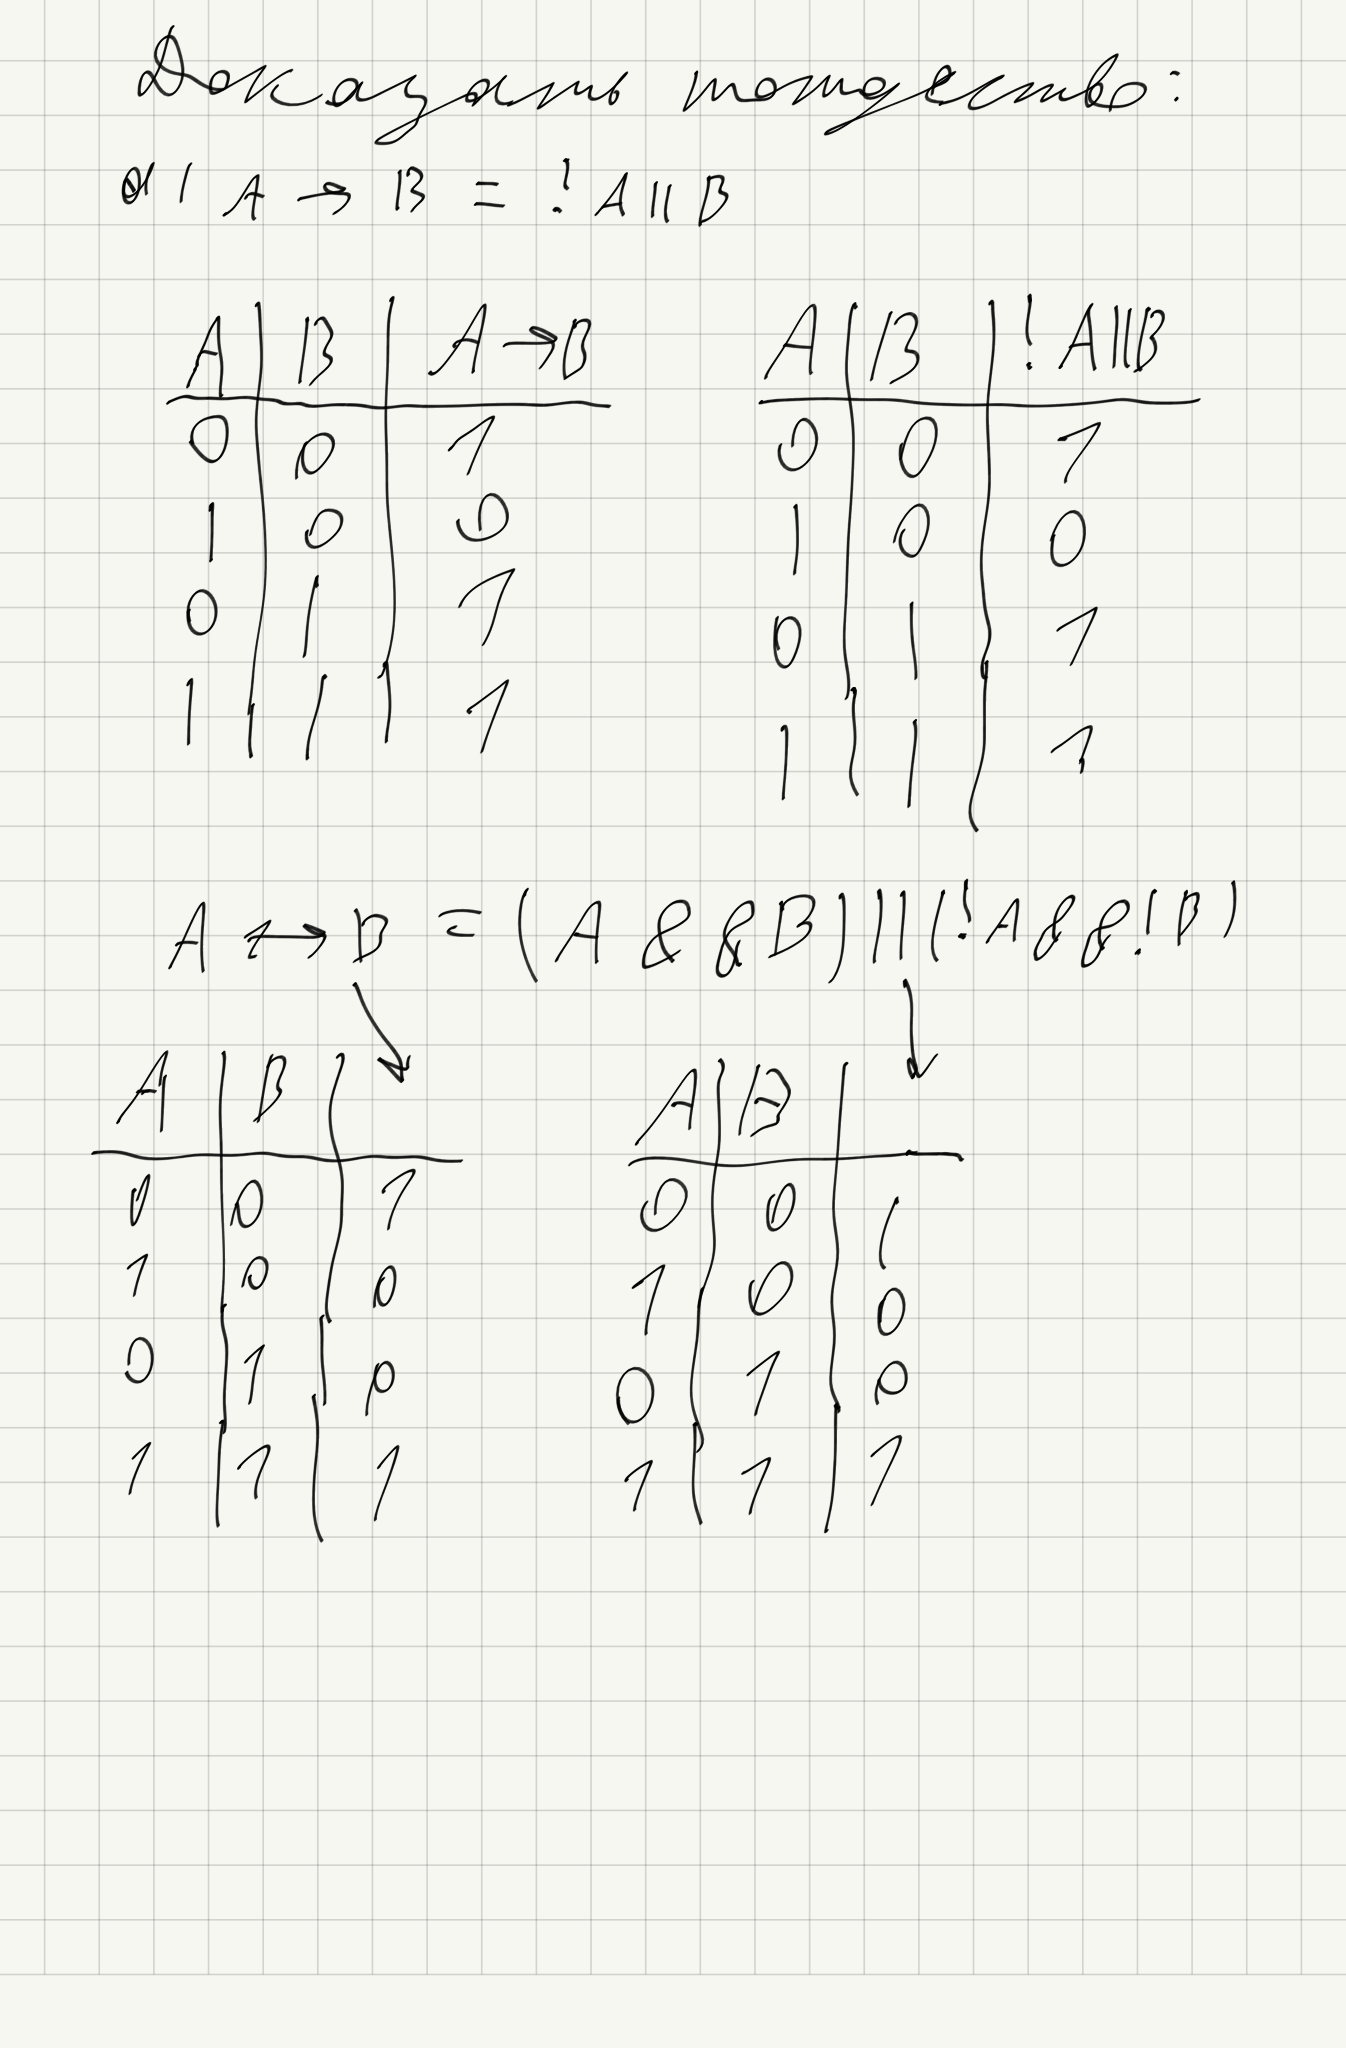 Доказать тождество:
а) A → B = !A||B
A | B | A → B
0 | 0 | 1
1 | 0 | 0
0 | 1 | 1
1 | 1 | 1
A | B | !A||B
0 | 0 | 1
1 | 0 | 0
0 | 1 | 1
1 | 1 | 1
A ↔ B = (A && B) || (!A && !B)
A | B |
0 | 0 | 1
1 | 0 | 0
0 | 1 | 0
1 | 1 | 1
A | B |
0 | 0 | 1
1 | 0 | 0
0 | 1 | 0
1 | 1 | 1